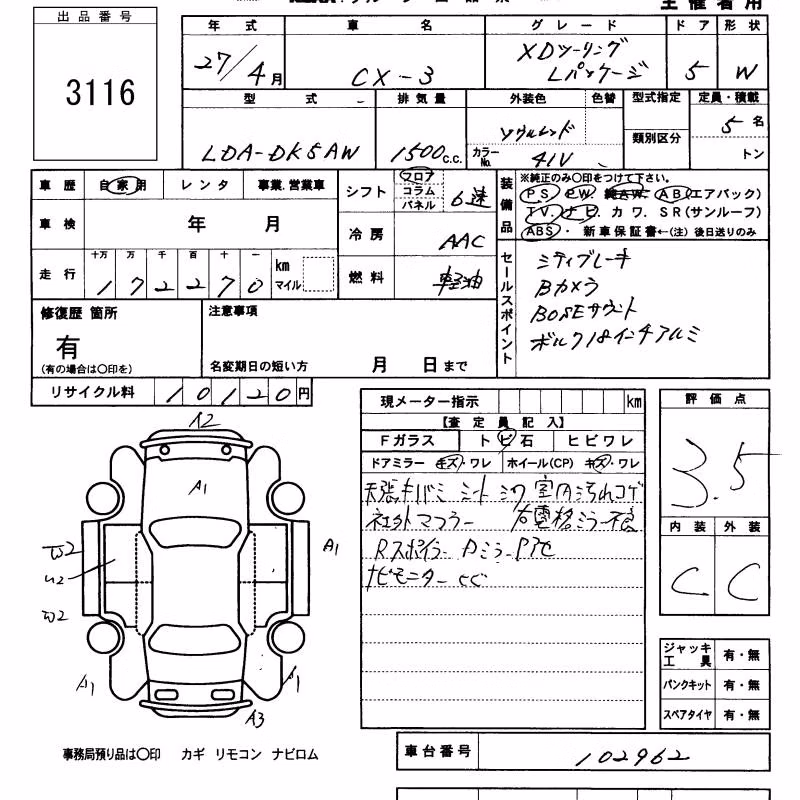 出品番号
3116
年式 車名 グレード ドア 形状
27/4月 CX-3 XDツーリング Lパッケージ 5 W
型式 排気量 外装色 色替 型式指定 定員・積載
LDA-DK5AW 1500c.c. ソウルレッド 類別区分 5名
カラーNo. 41V トン
車歴 自家用 レンタ 事業.営業車
シフト フロア コラム パネル 6速
装備品 ※純正のみ〇印をつけて下さい。
PS. PW. 純AW. AB(エアバック)
TV. ナビ. カワ. SR(サンルーフ)
ABS ・ 新車保証書←(注)後日送りのみ
車検 年 月
冷房 AAC
走行 十万 万 千 百 十 一
172270 km マイル
燃料 軽油
セールスポイント
シティブレーキ
Bカメラ
BOSEサウンド
ボルク18インチアルミ
修復歴 箇所
有
(有の場合は〇印を)
注意事項
名変期日の短い方 月 日まで
リサイクル料 10120円
現メーター指示 km
【査定員記入】
Fガラス トビ石 ヒビワレ
ドアミラー キズ・ワレ ホイール(CP) キズ・ワレ
天張キバミ シート シワ 室内汚れコゲ
社外マフラー 右電格ミラー不良
Rスポイラー Dミラー
ナビモニター
評価点
3.5
内装 外装
C C
A2
A1
A1
W2
U2
W2
A1
A1
A3
ジャッキ工具 有・無
パンクキット 有・無
スペアタイヤ 有・無
事務局預り品は〇印 カギ リモコン ナビロム
車台番号 102962